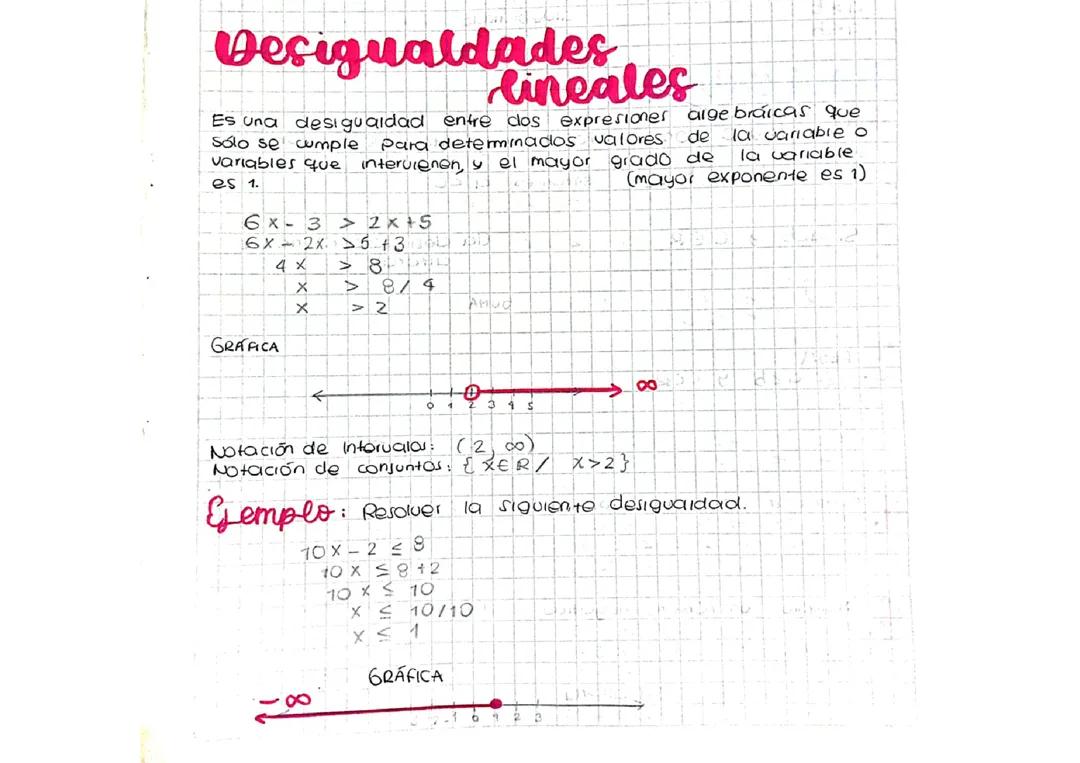 Desigualdades
lineales
Es una desigualdad entre dos expresiones algebraícas que
sólo se cumple para determinados valores de la variable o
variables que intervienen, y el mayor grado de la variable
es 1. (mayor exponente es 1)
6x - 3 > 2x + 5
6x - 2x > 5 + 3
4x > 8
x > 8/4
x > 2
GRÁFICA
∞
0 1 2 3 4 5
Notación de intervalos: (2, ∞)
Notación de conjuntos: { x∈R / x>2}
Ejemplo: Resolver la siguiente desigualdad.
10x - 2 ≤ 8
10x ≤ 8 + 2
10x ≤ 10
x ≤ 10/10
x ≤ 1
GRÁFICA
-∞
-1 0 1 2 3